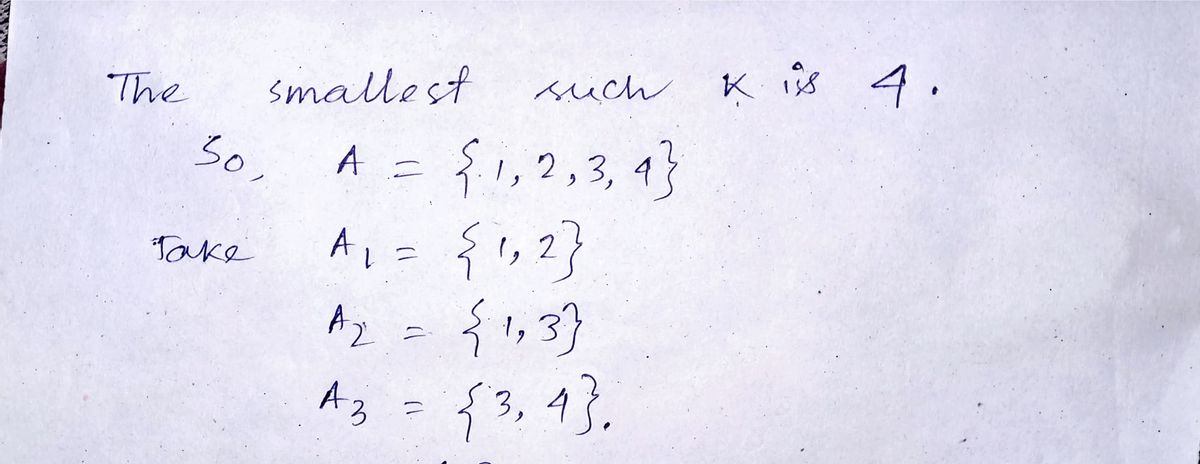 The smallest such K is 4.
So, A = {1, 2, 3, 4}
Take A1 = {1, 2}
A2 = {1, 3}
A3 = {3, 4}.